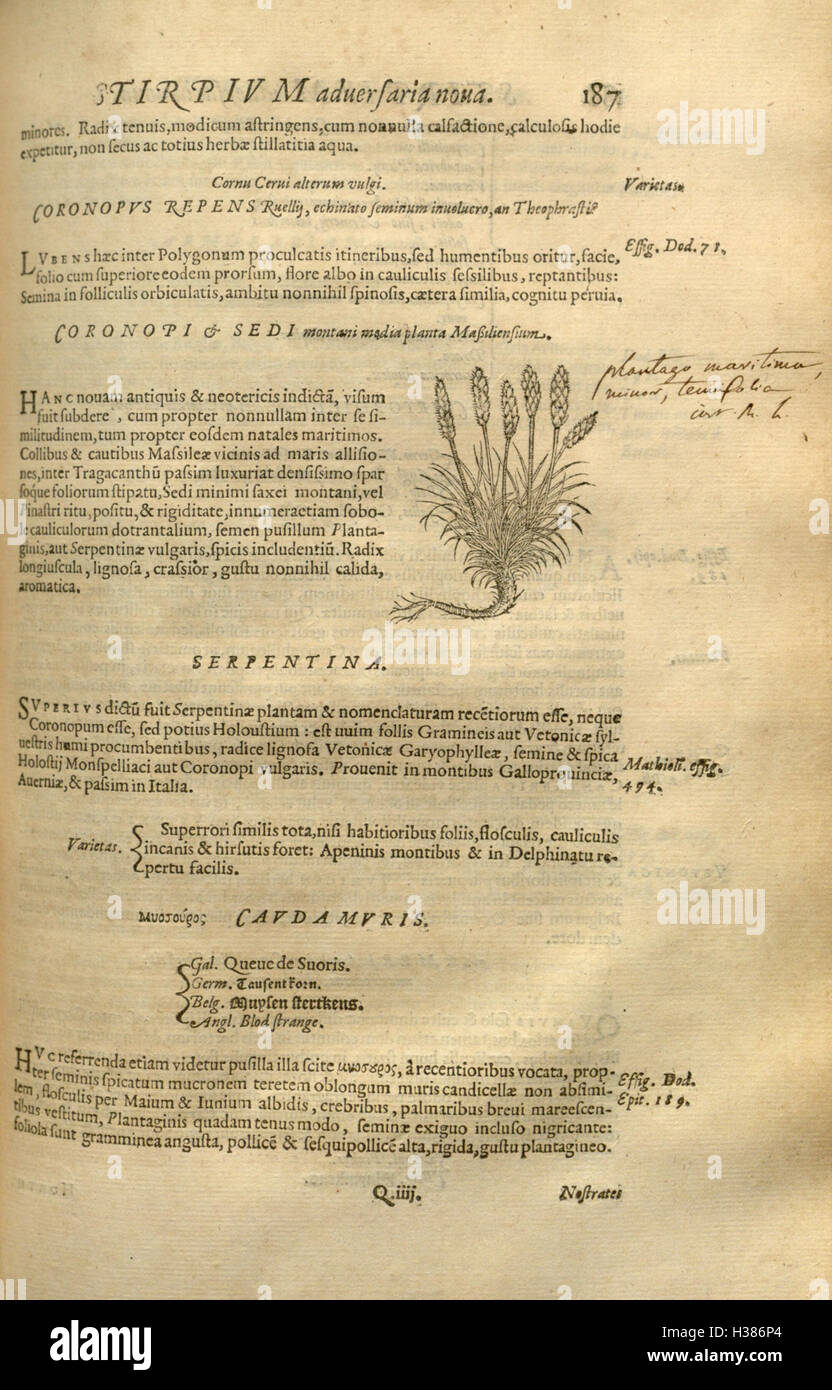 STIRPIVM aduersaria noua. 187
minores. Radix tenuis, modicum astringens, cum nonnulla calfactione, calculosis hodie
expetitur, non secus ac totius herbæ stillatitia aqua.
Cornu Cerui alterum vulgi.
Varietas
CORONOPVS REPENS Ruellij, echinato seminum inuolucro, an Theophrasti?
Effig. Dod. 71.
LVBENS hæc inter Polygonum proculcatis itineribus, sed humentibus oritur, facie,
folio cum superiore eodem prorsum, flore albo in cauliculis sessilibus, reptantibus:
Semina in folliculis orbiculatis, ambitu nonnihil spinosis, cætera similia, cognitu peruia.
CORONOPI & SEDI montani media planta Massiliensium.
plantago maritima,
minor, tenuifolia
HANC nouam antiquis & neotericis indictā, visum
fuit subdere, cum propter nonnullam inter se si-
militudinem, tum propter eosdem natales maritimos.
Collibus & cautibus Massileæ vicinis ad maris allisio-
nes, inter Tragacanthū passim luxuriat densissimo spar
soque foliorum stipatu, Sedi minimi saxei montani, vel
Pinastri ritu, positu, & rigiditate, innumeræ etiam sobo-
le cauliculorum dotrantalium, semen pusillum Planta-
ginis, aut Serpentinæ vulgaris, spicis includentiū. Radix
longiuscula, lignosa, crassior, gustu nonnihil calida,
aromatica.
SERPENTINA.
SVPERIVS dictū fuit Serpentinæ plantam & nomenclaturam recētiorum esse, neque
Coronopum esse, sed potius Holoustium: est uuim follis Gramineis aut Vetonicæ syl-
uestris humi procumbentibus, radice lignosa Vetonicæ Garyophylleæ, semine & spica
Holostij Monspelliaci aut Coronopi vulgaris. Prouenit in montibus Galloprouinciæ,
Auerniæ, & passim in Italia.
Mathioli. effig.
494.
Varietas.
Superrori similis tota, nisi habitioribus foliis, flosculis, cauliculis
incanis & hirsutis foret: Apeninis montibus & in Delphinatu re-
pertu facilis.
Μυοσοῦρος CAVDA MVRIS.
Gal. Queue de Suoris.
Germ. Tausent korn.
Belg. Muysen steertkens.
Angl. Blod strange.
HVC referrenda etiam videtur pusilla illa scite μυοσουρος, à recentioribus vocata, prop-
ter seminis spicatum mucronem teretem oblongum muris candicellæ non absimi-
lem, flosculis per Maium & Iunium albidis, crebribus, palmaribus breui marcescen-
tibus vestitum, Plantaginis quadam tenus modo, seminæ exiguo incluso nigricante:
foliola sunt gramminea angusta, pollicē & sesquipollicē alta, rigida, gustu plantagineo.
Effig. Dod.
Epit. 189.
Q.iiij. Nostrates
alamy
Image ID: H386P4
www.alamy.com